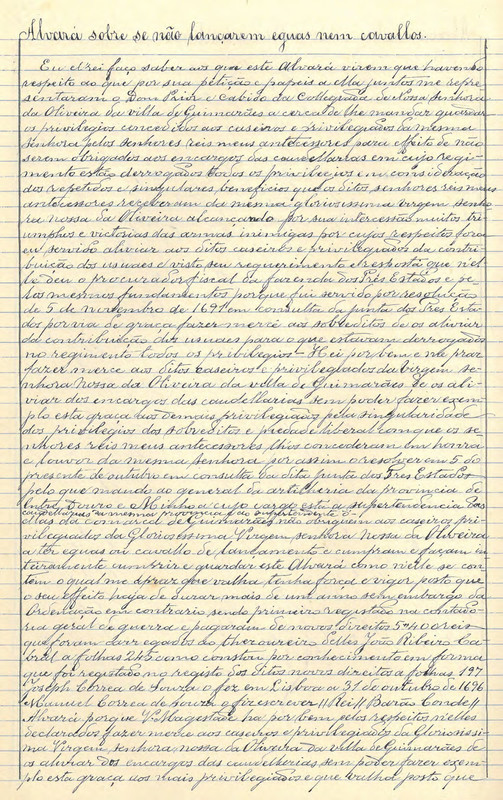 Alvará sobre se não lançarem eguas nem cavallos.
Eu elrei faço saber aos que este Alvará virem que havendo
respeito ao que por sua petição e papeis a ella juntos me repre
sentaram o Dom Prior e Cabido da Collegiada de Nossa Senhora
da Oliveira da villa de Guimarães a cerca de lhe mandar guardar
os privilegios concedidos aos caseiros e privilegiados da mesma
Senhora pelos senhores reis meus antecessores para effeito de não
serem obrigados aos encargos das caudellarias em cujo regi-
mento estão derrogados todos os privilegios em consideração
dos repetidos e singulares beneficios que os ditos senhores reis meus
antecessores receberam da mesma gloriosissima virgem senho
ra nossa da Oliveira alcançando por sua intercessão muitos tri
umphos e victorias das armas inimigas por cujos respeitos fora
eu servido aliviar aos ditos caseiros e privilegiados da contri
buição dos usuaes e visto seu requerimento e resposta que n'el
le deu o procurador fiscal da fazenda dos Três Estados e pe
los mesmos fundamentos porque fui servido por resolução
de 5 de novembro de 1691 em consulta da junta dos Tres Esta
dos por via de graça fazer mercê aos sobreditos de os aliviar
da contribuição dos usuaes para o que estavam derrogados
no regimento todos os privilegios - Hei por bem e me praz
fazer merce aos ditos caseiros e privilegiados da Virgem se-
nhora Nossa da Oliveira da villa de Guimarães de os ali-
viar dos encargos das caudellarias sem poder fazer exem
plo esta graça aos demais privilegiados pela singularidade
dos privilegios dos sobreditos e piedade liberal com que os se
nhores reis meus antecessores lhos concederam em honra
e louvor da mesma senhora por assim o resolver em 5 do
presente de outubro em consulta da dita junta dos Tres Estados
pelo que mando ao general da artilheria da provincia de
Entre Douro e Minho a cujo cargo está a superintendencia das
caudellarias da mesma provincia
ellas da comarca de Guimarães não obriguem aos caseiros pri
vilegiados da Gloriosissima Virgem senhora Nossa da Oliveira
a ter eguas ou cavallo de lançamento e cumpram e façam in
teiramente cumprir e guardar este Alvará como nelle se con
tém o qual me apraz que valha tenha força e vigor posto que
o seu effeito haja de durar mais de um anno sem embargo da
Ordenação em contrario sendo primeiro registado na contado
ria geral de guerra e pagaram de novos direitos 5#40 reis
que foram carregados ao thesoureiro delles João Ribeiro Ca-
bral a folhas 245 como constou por conhecimento em forma
que foi registado no registo dos ditos novos direitos a folhas 197
Joseph Correa de Souza o fez em Lisboa a 31 de outubro de 1696
Manuel Correa de Souza o fez escrever // Rei // Barão Conde //
Alvará porque V. Magestade ha por bem pelos respeitos nelles
declarados fazer merce aos caseiros e privilegiados da Gloriosissi
ma Virgem, senhora nossa da Oliveira da villa de Guimarães de
os aliviar dos encargos das caudelherias sem poder fazer exem
plo esta graça aos mais privilegiados e que valha posto que